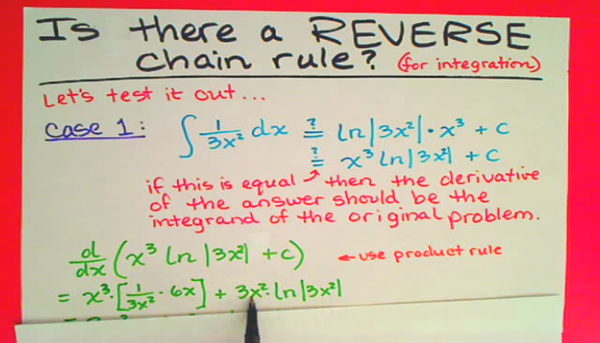 Is there a REVERSE
chain rule? (for integration)
Let's test it out...
Case 1: ∫ 1/3x² dx ≟ ln|3x²|·x³ + c
≟ x³ ln|3x²| + c
if this is equal ↗ then the derivative
of the answer should be the
integrand of the original problem.
d/dx (x³ ln |3x²| + c) ← use product rule
= x³·[1/3x² · 6x] + 3x²·ln|3x²|